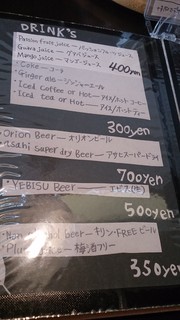 DRINK's
Passion Fruit juice ― パッションフルーツジュース
Guava juice ― グァバジュース
Mango juice ― マンゴージュース
400yen
Coke ― コーラ
Ginger ale ― ジンジャーエール
Iced Coffee or Hot ― アイス/ホットコーヒー
Iced tea or Hot ― アイス/ホットティー
300yen
Orion Beer ― オリオンビール
asahi super dry Beer ― アサヒスーパードライ
700yen
YEBISU Beer ― エビス(中)
500yen
Beer ― キリンFREEビール
梅酒フリー
350yen